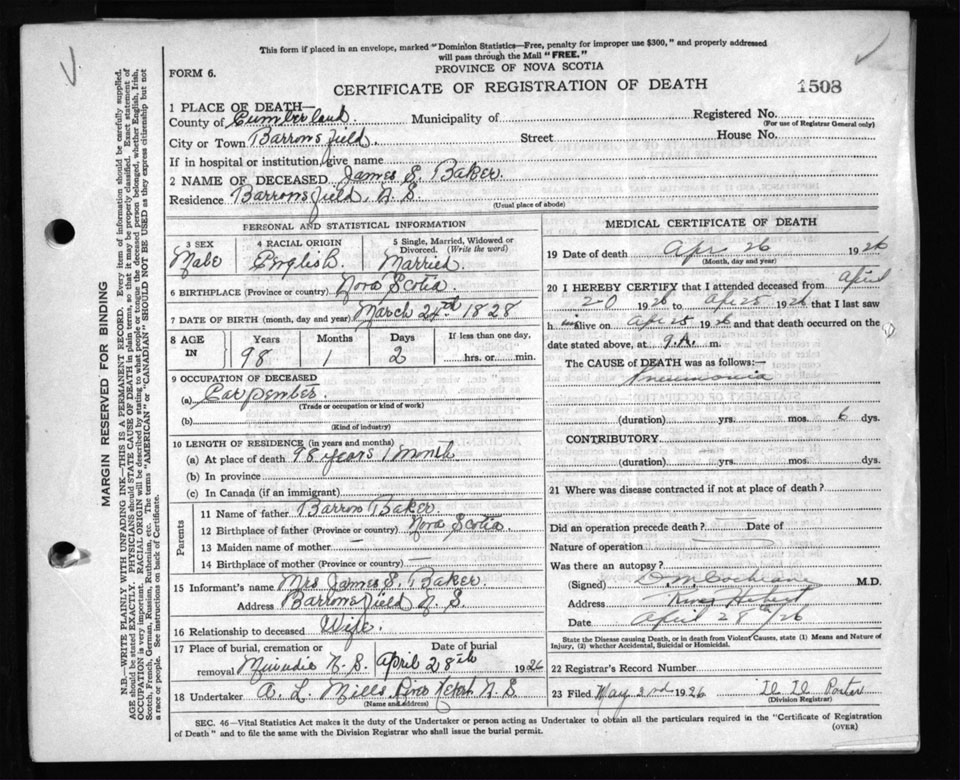 This form if placed in an envelope, marked "Dominion Statistics—Free, penalty for improper use $300," and properly addressed
will pass through the Mail "FREE."
FORM 6.
PROVINCE OF NOVA SCOTIA
CERTIFICATE OF REGISTRATION OF DEATH
1508
1 PLACE OF DEATH—
County of Cumberland Municipality of Registered No.
(For use of Registrar General only)
City or Town Barronsfield. Street House No.
If in hospital or institution, give name
2 NAME OF DECEASED James S. Baker.
Residence Barronsfield, N. S.
(Usual place of abode)
PERSONAL AND STATISTICAL INFORMATION
3 SEX 4 RACIAL ORIGIN 5 Single, Married, Widowed or Divorced. (Write the word)
Male English. Married.
6 BIRTHPLACE (Province or country) Nova Scotia.
7 DATE OF BIRTH (month, day and year) March 24th 1828
8 AGE IN Years Months Days If less than one day,
98 1 2 hrs. or min.
9 OCCUPATION OF DECEASED
(a) Carpenter
(Trade or occupation or kind of work)
(b)
(Kind of industry)
10 LENGTH OF RESIDENCE (in years and months)
(a) At place of death 98 years 1 month
(b) In province
(c) In Canada (if an immigrant)
Parents
11 Name of father Barron Baker.
12 Birthplace of father (Province or country) Nova Scotia.
13 Maiden name of mother —
14 Birthplace of mother (Province or country) —
15 Informant's name Mrs James S. Baker.
Address Barronsfield N. S.
16 Relationship to deceased Wife.
17 Place of burial, cremation or Date of burial
removal N. S. April 28th 1926
18 Undertaker A. L. Mills River Hebert N. S.
(Name and address)
MEDICAL CERTIFICATE OF DEATH
19 Date of death Apr 26 1926
(Month, day and year)
20 I HEREBY CERTIFY that I attended deceased from April
20 1926 to Apr 25 1926 that I last saw
him alive on Apr 25 1926 and that death occurred on the
date stated above, at 9 A. m.
The CAUSE of DEATH was as follows:—
Pneumonia
(duration) yrs. mos. 6 dys.
CONTRIBUTORY
(duration) yrs. mos. dys.
21 Where was disease contracted if not at place of death?
Did an operation precede death? — Date of
Nature of operation —
Was there an autopsy?
(Signed) Cochrane M.D.
Address River Hebert
Date April 28 /26
State the Disease causing Death, or in death from Violent Causes, state (1) Means and Nature of
Injury, (2) whether Accidental, Suicidal or Homicidal.
22 Registrar's Record Number
23 Filed May 2nd 1926 Porter
(Division Registrar)
SEC. 46—Vital Statistics Act makes it the duty of the Undertaker or person acting as Undertaker to obtain all the particulars required in the "Certificate of Registration
of Death" and to file the same with the Division Registrar who shall issue the burial permit.
(OVER)
MARGIN RESERVED FOR BINDING
N.B.—WRITE PLAINLY WITH UNFADING INK—THIS IS A PERMANENT RECORD. Every item of information should be carefully supplied.
AGE should be stated EXACTLY. PHYSICIANS should STATE CAUSE OF DEATH in plain terms, so that it may be properly classified. Exact statement of
OCCUPATION is very important. RACIAL ORIGIN will be described by stating to what people or tongue the deceased person belonged, whether English, Irish,
Scotch, French, German, Russian, Ruthenian, etc. The terms "AMERICAN" or "CANADIAN" SHOULD NOT BE USED as they express citizenship but not
a race or people. See instructions on back of Certificate.